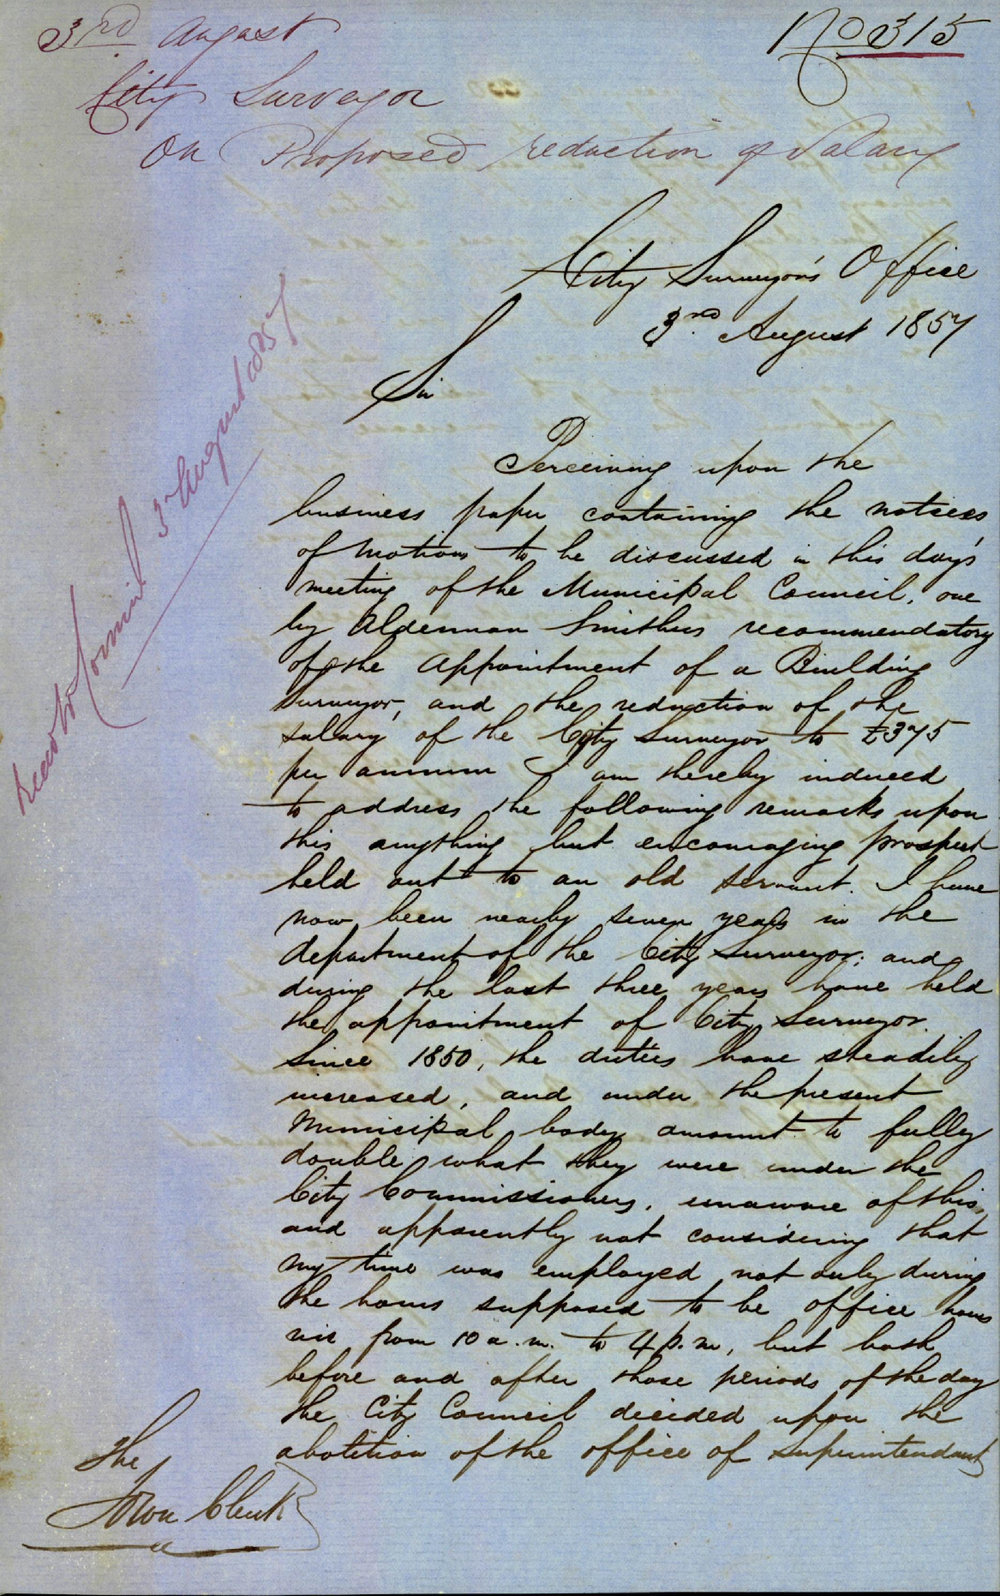 3rd August
No 315
City Surveyor
On Proposed reduction of Salary
City Surveyor's Office
3rd August 1857
Sir
Perceiving upon the
business paper containing the notices
of Motions to be discussed in this day's
meeting of the Municipal Council, one
by Alderman Smithers recommendatory
of the appointment of a Building
Surveyor, and the reduction of the
salary of the City Surveyor to £375
per annum I am thereby induced
to address the following remarks upon
this anything but encouraging prospect
held out to an old servant. I have
now been nearly seven years in the
department of the City Surveyor; and
during the last three years have held
the appointment of City Surveyor.
Since 1850, the duties have steadily
increased, and under the present
Municipal body amount to fully
double what they were under the
City Commissioners, unaware of this,
and apparently not considering that
my time was employed not only during
the hours supposed to be office hours
viz from 10 a.m. to 4 p.m, but both
before and after those periods of the day
the City Council decided upon the
abolition of the office of Superintendant
The
Town Clerk
Council 3 August 1857